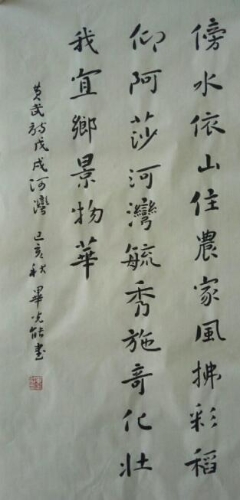 傍水依山住農家風拂彩稻
仰阿莎河灣毓秀施奇化壯
我宜鄉景物華
黄武詩戊戌河灣 己亥秋 畢光能書